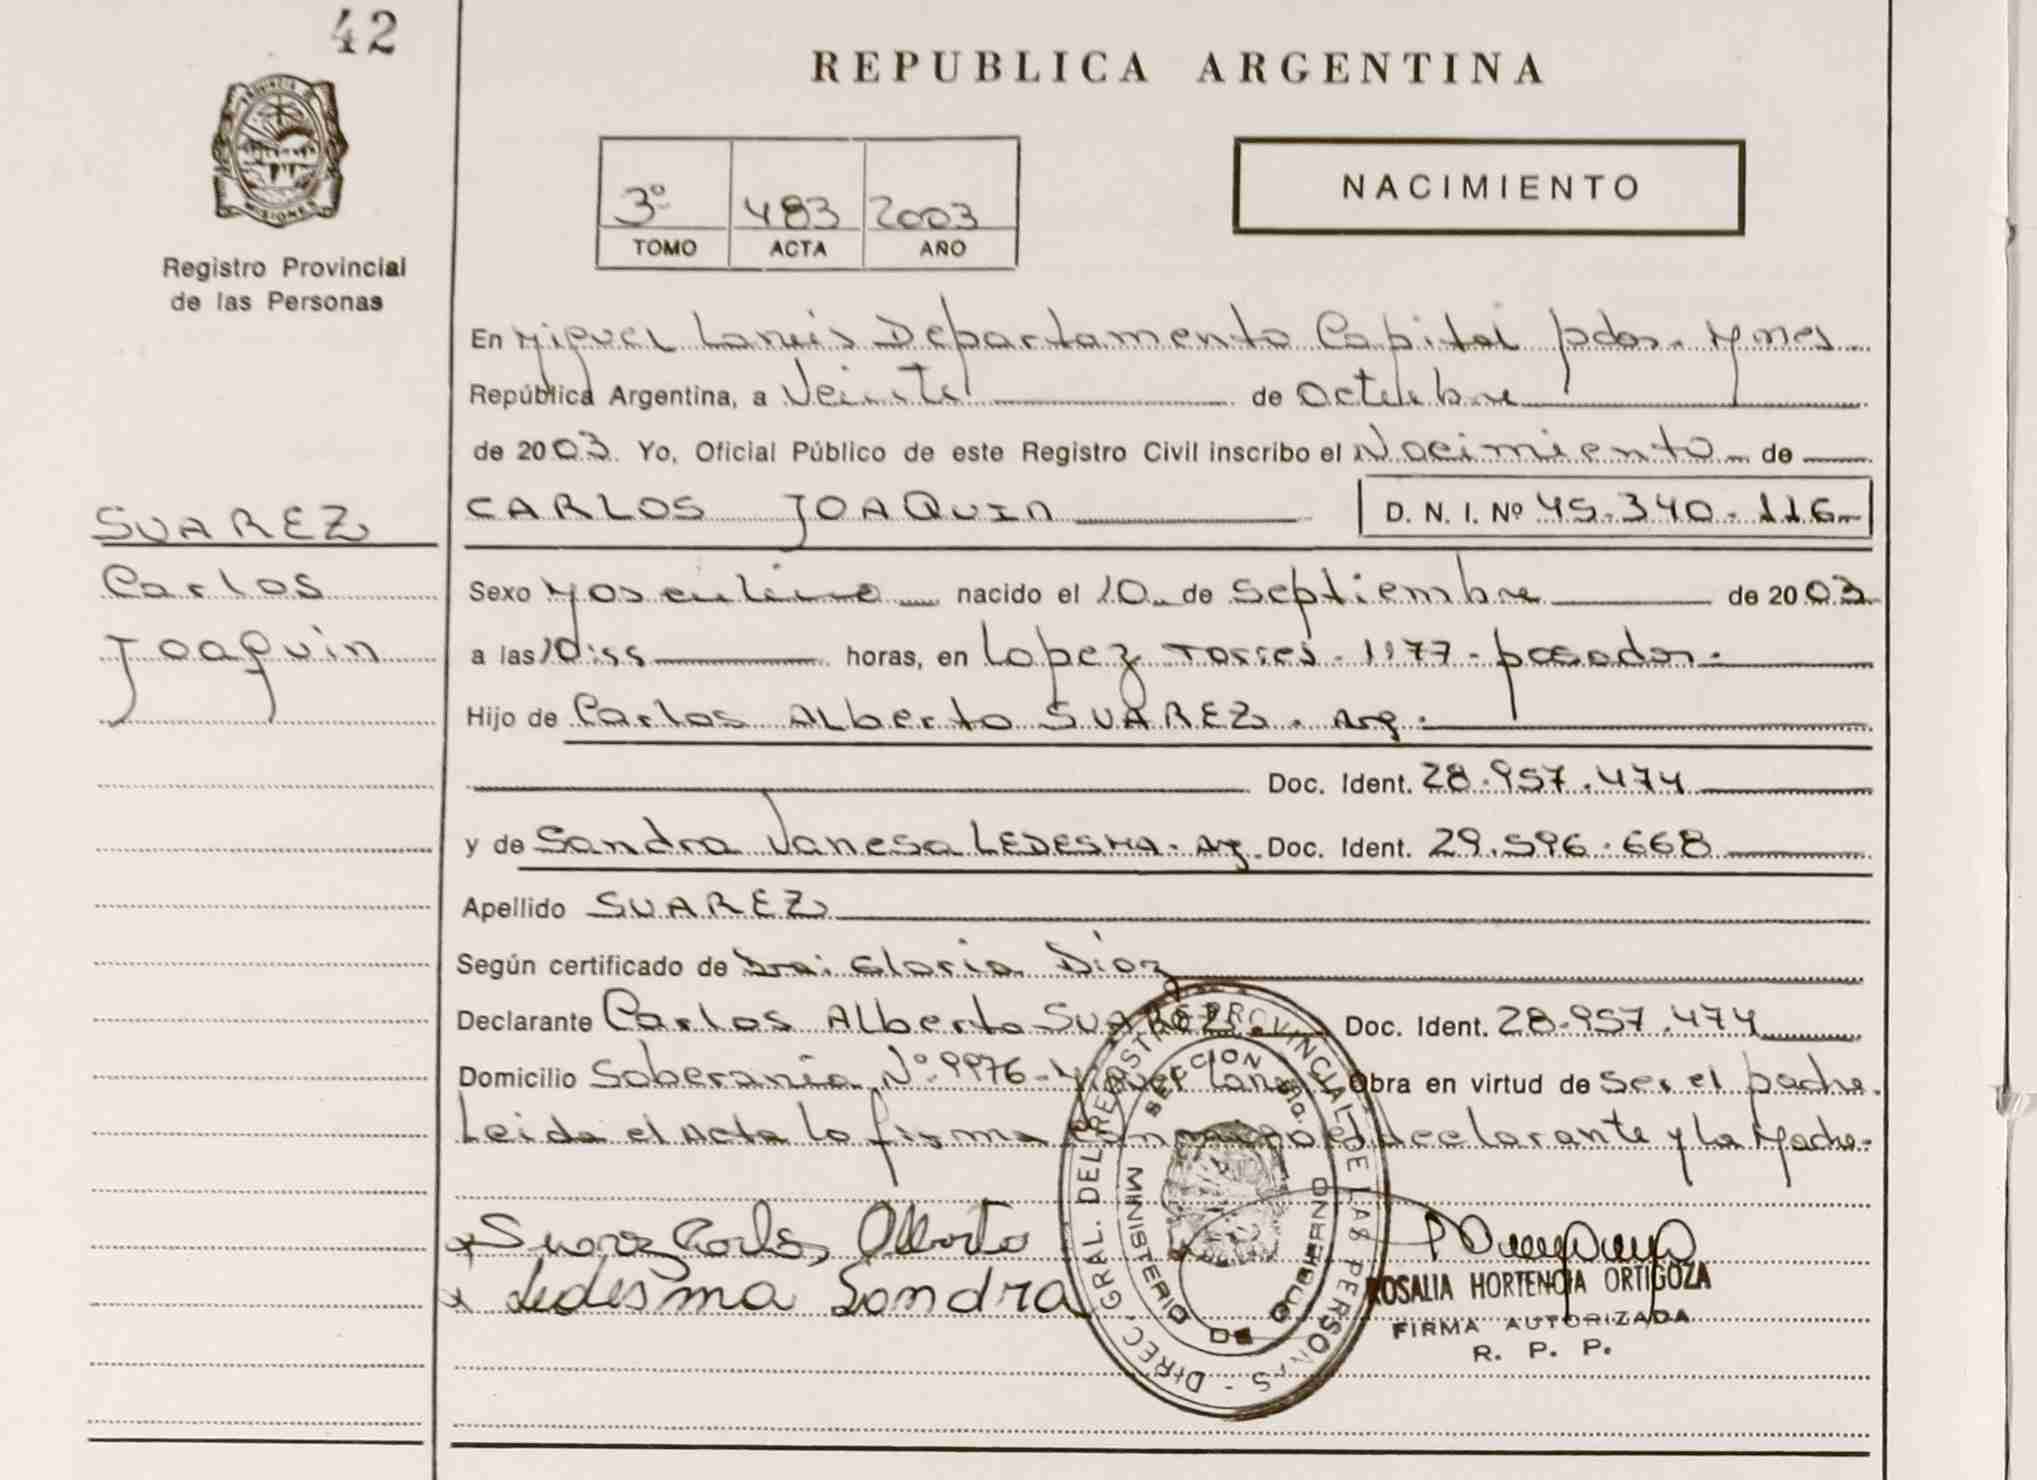 42
REPUBLICA ARGENTINA
PROVINCIA DE
MISIONES
Registro Provincial
de las Personas
3º 483 2003
TOMO ACTA AÑO
NACIMIENTO
En Miguel Lanus Departamento Capital pdas. Mnes
República Argentina, a Veinte de Octubre
de 2003. Yo, Oficial Público de este Registro Civil inscribo el Nacimiento de
SUAREZ
Carlos
Joaquin
CARLOS JOAQUIN D. N. I. Nº 45.340.116
Sexo Masculino nacido el 10 de Septiembre de 2003
a las 10:55 horas, en Lopez Torres. 1177. posadas.
Hijo de Carlos ALberto SUAREZ. arg.
Doc. Ident. 28.957.474
y de Sandra Vanesa LEDESMA. arg. Doc. Ident. 29.596.668
Apellido SUAREZ
Según certificado de Dra: Gloria Díaz
Declarante Carlos ALberto SUAREZ. Doc. Ident. 28.957.474
Domicilio Soberanía Nº 9976 - Miguel Lanus Obra en virtud de ser el padre.
Leida el Acta lo firma conmigo el declarante y La Madre.
Suarez Carlos Alberto
Ledesma Sandra
DIREC. GRAL. DEL REGISTRO PROVINCIAL DE LAS PERSONAS -
SECCION
MINISTERIO DE GOBIERNO
ROSALIA HORTENCIA ORTIGOZA
FIRMA AUTORIZADA
R. P. P.